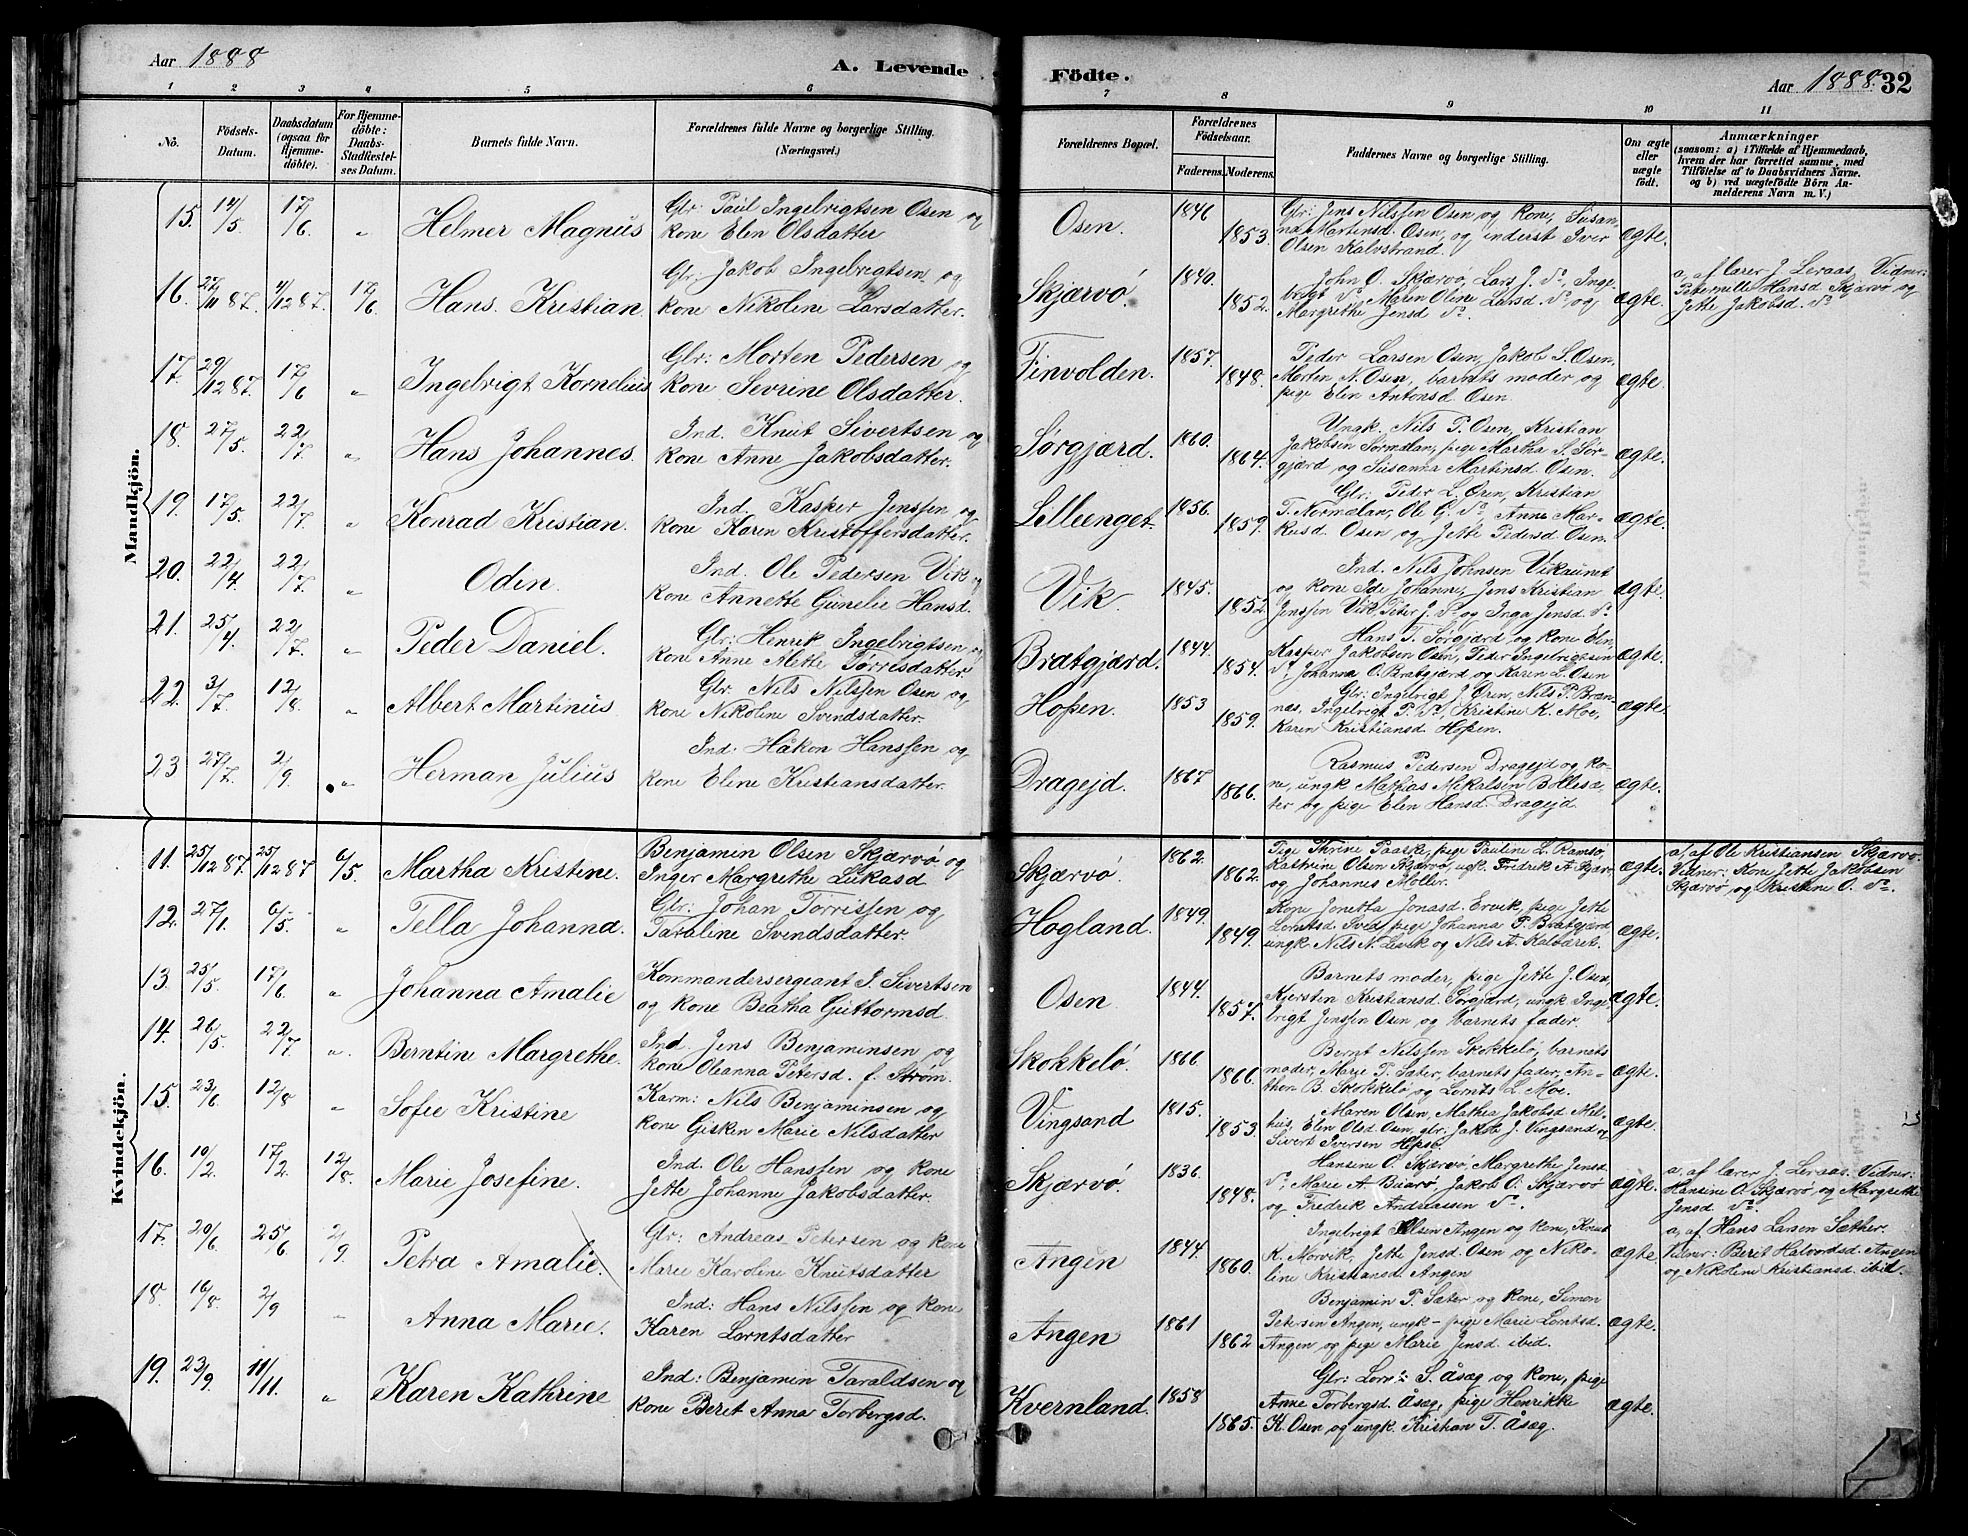 Aar 1888
A. Levende Födte.
Aar 1888. 32
1 2 3 4 5 6 7 8 9 10 11
No. Födsels-Datum. Daabsdatum (ogsaa for Hjemme-döbte). For Hjemme-döbte: Daabs-Stadfæstel-ses Datum. Barnets fulde Navn. Forældrenes fulde Navne og borgerlige Stilling. (Næringsvei.) Forældrenes Bopæl. Forældrenes Födselsaar. Faderens. Moderens. Faddernes Navne og borgerlige Stilling. Om ægte eller uægte födt. Anmærkninger (saasom: a) i Tilfælde af Hjemmedaab, hvem der har forrettet samme, med Tilföielse af to Daabsvidners Navne. og b) ved uægtefödte Börn An-melderens Navn m. V.)
Mandkjön.
15. 14/5 17/6 „ Helmer Magnus Glr. Paul Ingebrigtsen Osen og
kone Elen Olsdatter Osen. 1846 1853. Glr. Jens Nilssen Osen og kone, Susan-
na Martinsd. Osen, og inderst Iver
Olsen Kalvstrand. ægte.
16. 27/11 87. 4/12 87. 17/6 Hans Kristian Glr. Jakob Ingebrigtsen og
kone Nikoline Larsdatter. Skjærvö. 1840. 1852. John O. Skjærvö, Lars J. do, Inge-
brigt do, Maren Oline Larsd. do, og
Margrethe Jensd do. ægte. a, af lærer J. Leraas, Vidner:
Peternille Hansd. Skjærvö og
Jette Jakobsd. do
17. 29/12 87. 17/6 „ Ingebrigt Kornelius Glr: Morten Pedersen og
kone Sevrine Olsdatter. Finvolden. 1857. 1848. Peder Larsen Osen, Jakob S. Osen,
Morten N. Osen, barnets moder og
pige Elen Antonsd Osen. ægte.
18. 27/5 22/7 „ Hans Johannes. Ind. Knut Sivertsen og
kone Anne Jakobsdatter. Sørgjærd. 1860. 1864. Ungk. Nils P. Osen, Kristian
Jakobsen Sørmelan, pige Martha S. Sør-
gjærd og Susanna Martinsd Osen. ægte.
19. 17/5 22/7 „ Konrad Kristian. Ind. Kasper Jenssen og
kone Karen Kristoffersdatter. Lilleenget. 1856. 1859. Glr: Peder L. Ören, Kristian
T. Normelan, Ole G. do, Anne Mar-
kusd. Osen og Jette Pedersd Osen. ægte.
20. 22/4 22/7 „ Odin. Ind. Ole Pedersen Vik og
kone Annette Gunelie Hansd. Vik. 1845. 1852. Ind. Nils Johnsen Vikaunet
og kone Ide Johanne, Jens Kristian
Jenssen Vik, Peter J. do og Inga Jensd. do ægte.
21. 25/4 22/7 „ Peder Daniel. Glr: Henrik Ingebrigtsen og
kone Anne Mette Tørrisdatter. Bratgjærd. 1844. 1854. Hans T. Sørgjærd og kone Elen,
Kasper Jakobsen Osen, Peder Ingebrigtsen
do, Johanna O. Bratgjærd og Karen L. Osen ægte.
22. 3/7 12/8 „ Albert Martinus Glr. Nils Nilssen Osen og
kone Nikoline Svendsdatter. Hopen. 1853 1859. Glr: Ingebrigt J. Ören, Nils P. Bran-
næs, Ingebrigt P. do, Kristine K. Moe,
Karen Kristiansd. Hopen. ægte.
23 27/7. 2/9 „ Herman Julius Ind: Håkon Hanssen og
kone Eline Kristiansdatter. Dragejd. 1867 1866. Rasmus Pedersen Dragejd og ko-
ne, ungk Mathias Mikalsen Bessesæ-
ter og pige Elen Hansd. Dragejd. ægte.
Kvindekjön.
11. 25/12 87. 25/12 87 6/5. Martha Kristine. Benjamin Olsen Skjærvö og
Inger Margrethe Lukasd Skjærvö. 1862. 1862. Pige Thrine Paaske, pige Pauline L. Ramsö,
Kathrine Olsen Skjærvö, ugk. Fredrik A. Skjærvö
og Johannes Möller. ægte. a, af Ole Kristiansen Skjærvö.
Vidner: Kone Jette Jakobsen
Skjærvö, og Kristine O. do.
12. 27/1. 6/5. „ Tella Johanna. Glr: Johan Tørrissen og
Taraline Svendsdatter. Hogland. 1849. 1849. Kone Jonetta Jonasd. Ervik, pige Jette
Lorntsd. Sved, pige Johanna P. Bratgjærd
ungk Nils N. Levik og Nils A. Kalbæret. ægte.
13. 25/5. 17/6 „ Johanna Amalie Kommandersergeant J. Sivertsen
og kone Beatha Guttormsd. Osen 1844. 1857. Barnets moder, pige Jette J. Osen,
Kjersten Kristiansd. Sørgjærd, ungk. Inge-
brigt Jenssen Osen og barnets fader. ægte.
14. 26/5 22/7 „ Berntine Margrethe. Ind. Jens Benjaminsen og
kone Oleanna Petersd. f. Strøm. Skokkelö. 1866 1860. Bernt Nilssen Skokkelö, barnets
moder, Marie P. Sæter, barnets fader, An-
thon B. Skokkelö og Lornts L. Moe. ægte.
15. 23/6 12/8 „ Sofie Kristine Karm: Nils Benjaminsen og
kone Gisken Marie Nilsdatter Vingsand 1815. 1853. Maren Olsen, Mathea Jakobsd Mel-
hus, Elen Olsd Osen, glr: Jakob J. Vingsand og
Sivert Iversen Hepsö. ægte.
16. 10/2. 17/2 12/8. Marie Josefine. Ind. Ole Hanssen og kone
Jette Johanne Jakobsdatter. Skjærvö. 1836. 1848. Hansine O. Skjærvö, Margrethe Jensd.
do, Marie A. Buarö, Jakob O. Skjærvö
og Fredrik Andreassen do. ægte. a, af lærer J. Leraas. Vidner:
Hansine O. Skjærvö, og Margrethe
Jensd do.
17. 20/6 25/6 2/9. Petra Amalie. Glr: Andreas Petersen og kone
Marie Karoline Knutsdatter Angen 1844. 1860. Ingebrigt Olsen Angen og kone, Knut
K. Norvik, Jette Jensd. Osen og Niko-
line Kristiansd. Angen ægte. a, af Hans Larsen Sæther.
Vidner: Berit Halvordsd. Angen
og Nikoline Kristiansd. ibid.
18. 16/8. 2/9 „ Anna Marie. Ind: Hans Nilssen og kone
Karen Lorntsdatter Angen 1861 1862 Benjamin P. Sæter og kone, Simon
Petersen Angen, ungk - pige Marie Lorntsd.
Angen og pige Marie Jensd. ibid. ægte.
19. 23/9 11/11. „ Karen Kathrine Ind: Benjamin Taraldsen og
kone Beret Anna Torbergsd. Kvernland. 1858 1865. Glr: Lor. S. Åsæg og kone, pige
Anne Torbergsd. Åsæg, pige Henrikke
K. Osen og ungk. Kristian T. Åsæg. ægte.